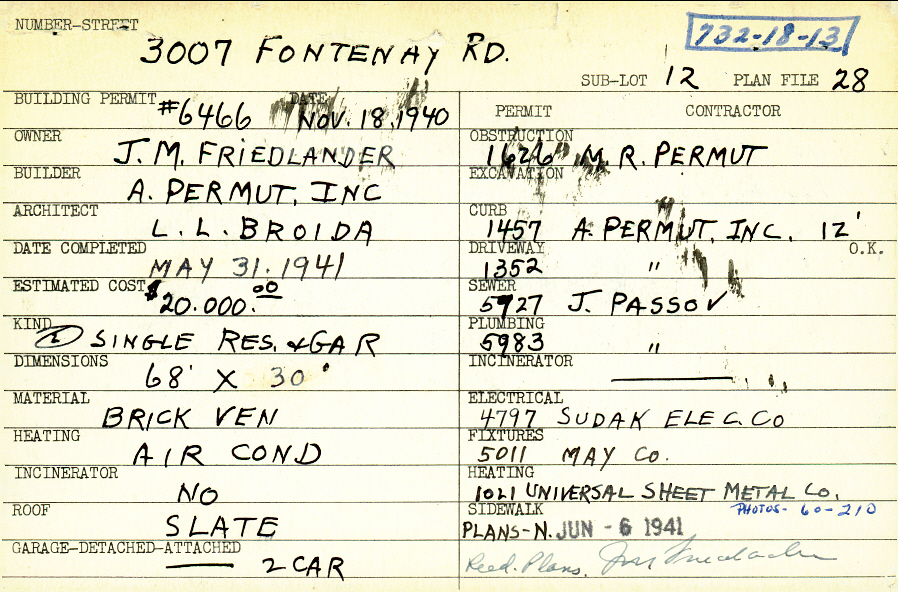 NUMBER-STREET
732-18-13
3007 FONTENAY RD.
SUB-LOT 12 PLAN FILE 28
BUILDING PERMIT #6466 DATE NOV. 18, 1940
OWNER J. M. FRIEDLANDER
BUILDER A. PERMUT, INC
ARCHITECT L. L. BROIDA
DATE COMPLETED MAY 31. 1941
ESTIMATED COST $20.000.00
KIND SINGLE RES. & GAR
DIMENSIONS 68' X 30'
MATERIAL BRICK VEN
HEATING AIR COND
INCINERATOR NO
ROOF SLATE
GARAGE-DETACHED-ATTACHED 2 CAR
PERMIT CONTRACTOR
OBSTRUCTION 1626 M. R. PERMUT
EXCAVATION
CURB 1457 A. PERMUT, INC. 12'
DRIVEWAY 1352 " O.K.
SEWER 5927 J. PASSOV
PLUMBING 5983 "
INCINERATOR
ELECTRICAL 4797 SUDAK ELEC. CO
FIXTURES 5011 MAY CO.
HEATING 1021 UNIVERSAL SHEET METAL CO.
SIDEWALK PHOTOS- 60-210
PLANS-N. JUN - 6 1941
Recd. Plans.